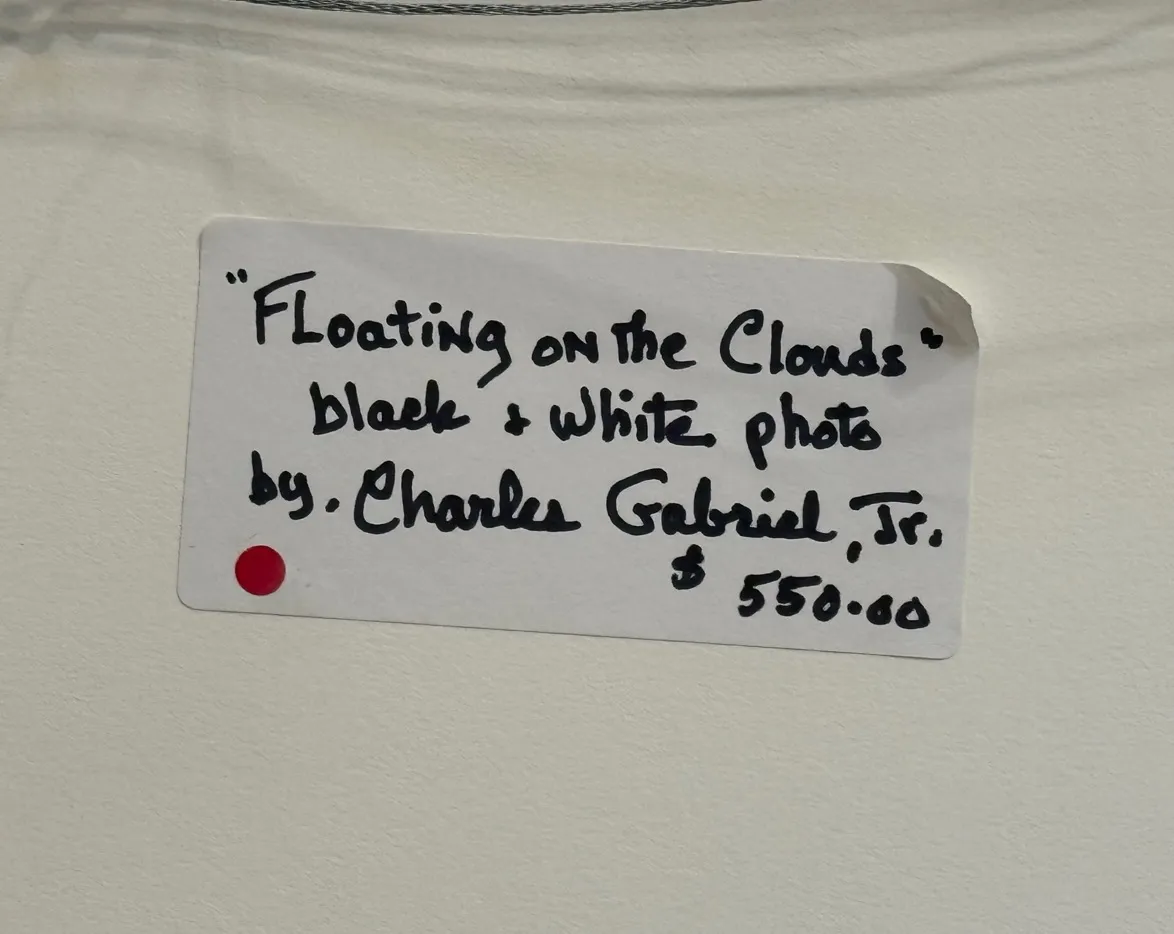 "FLoatiNg oN the Clouds"
black & white photo
by. Charles Gabriel, Jr.
$ 550.00